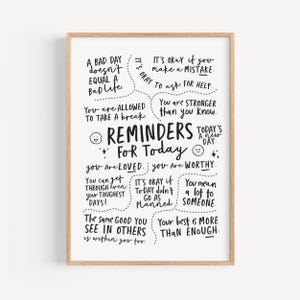 A BAD DAY
doesn't
EQUAL A
Bad life
IT'S OKAY
IT'S OKAY if you
make a MISTAKE
To ask FOR HELP.
You are ALLOWED
TO TAKE a break
You are STRONGER
than you know.
REMINDERS
FOR TODAY
TODAY'S
A new
DAY
you are LOVED.
you are WORTHY.
You can get
THROUGH even
your TOUGHEST
DAYS!
IT'S OKAY if
TODAY didn't
GO AS
Planned
You mean
a lot to
SOMEONE
The same GOOD YOU
SEE IN OTHERS
is within you too
Your best is MORE
THAN ENOUGH.